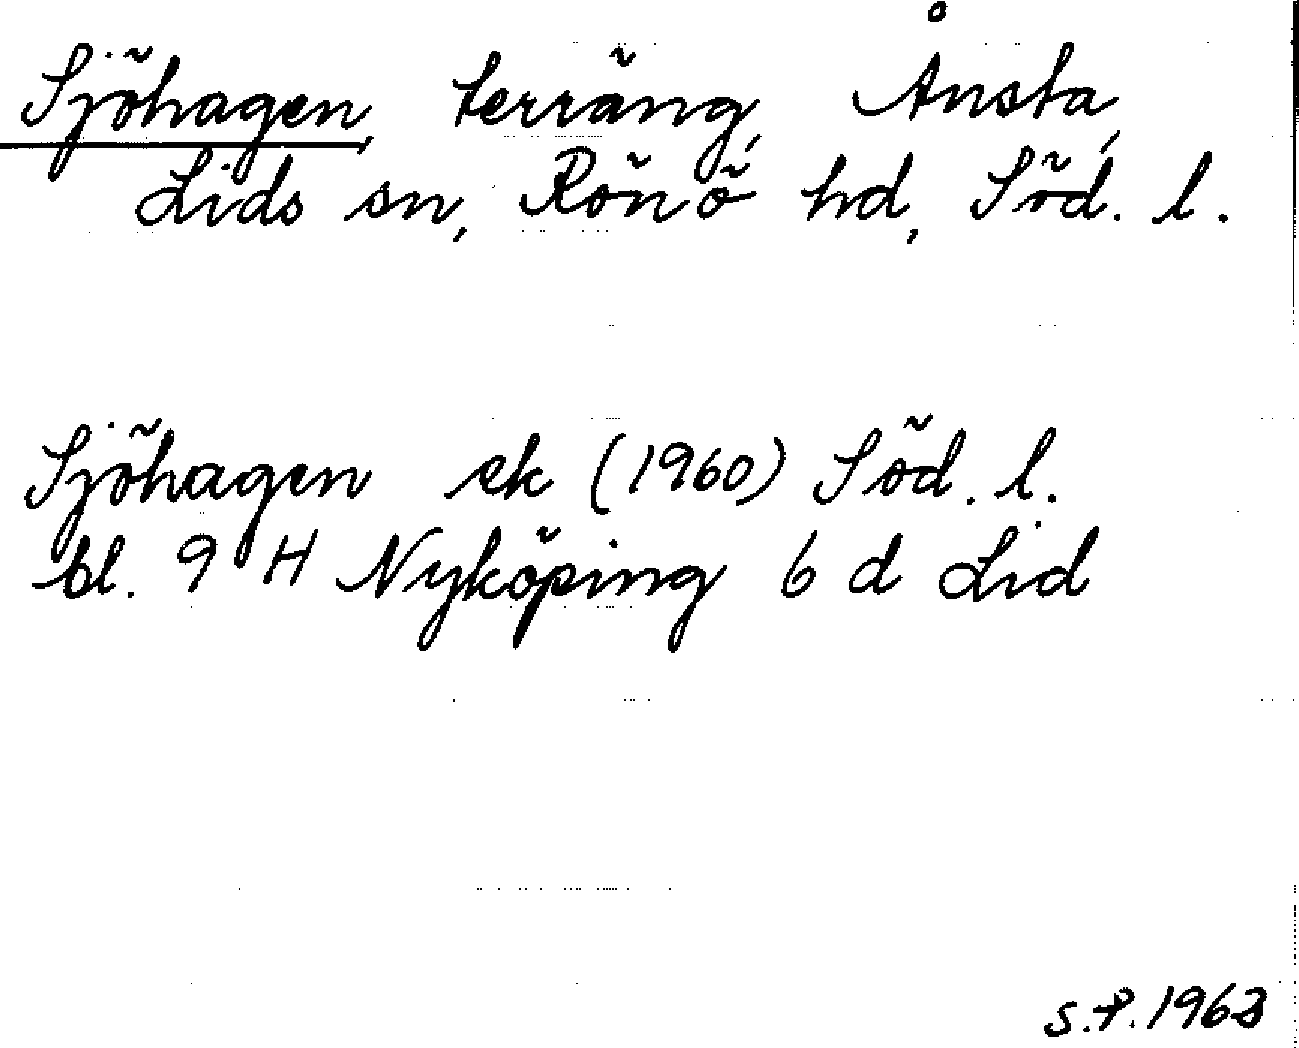 Sjöhagen, terräng, Ånsta,
Lids sn, Rönö hd, Söd. l.
Sjöhagen ek (1960) Söd. l.
bl. 9 H Nyköping 6 d Lid
S.P. 1963